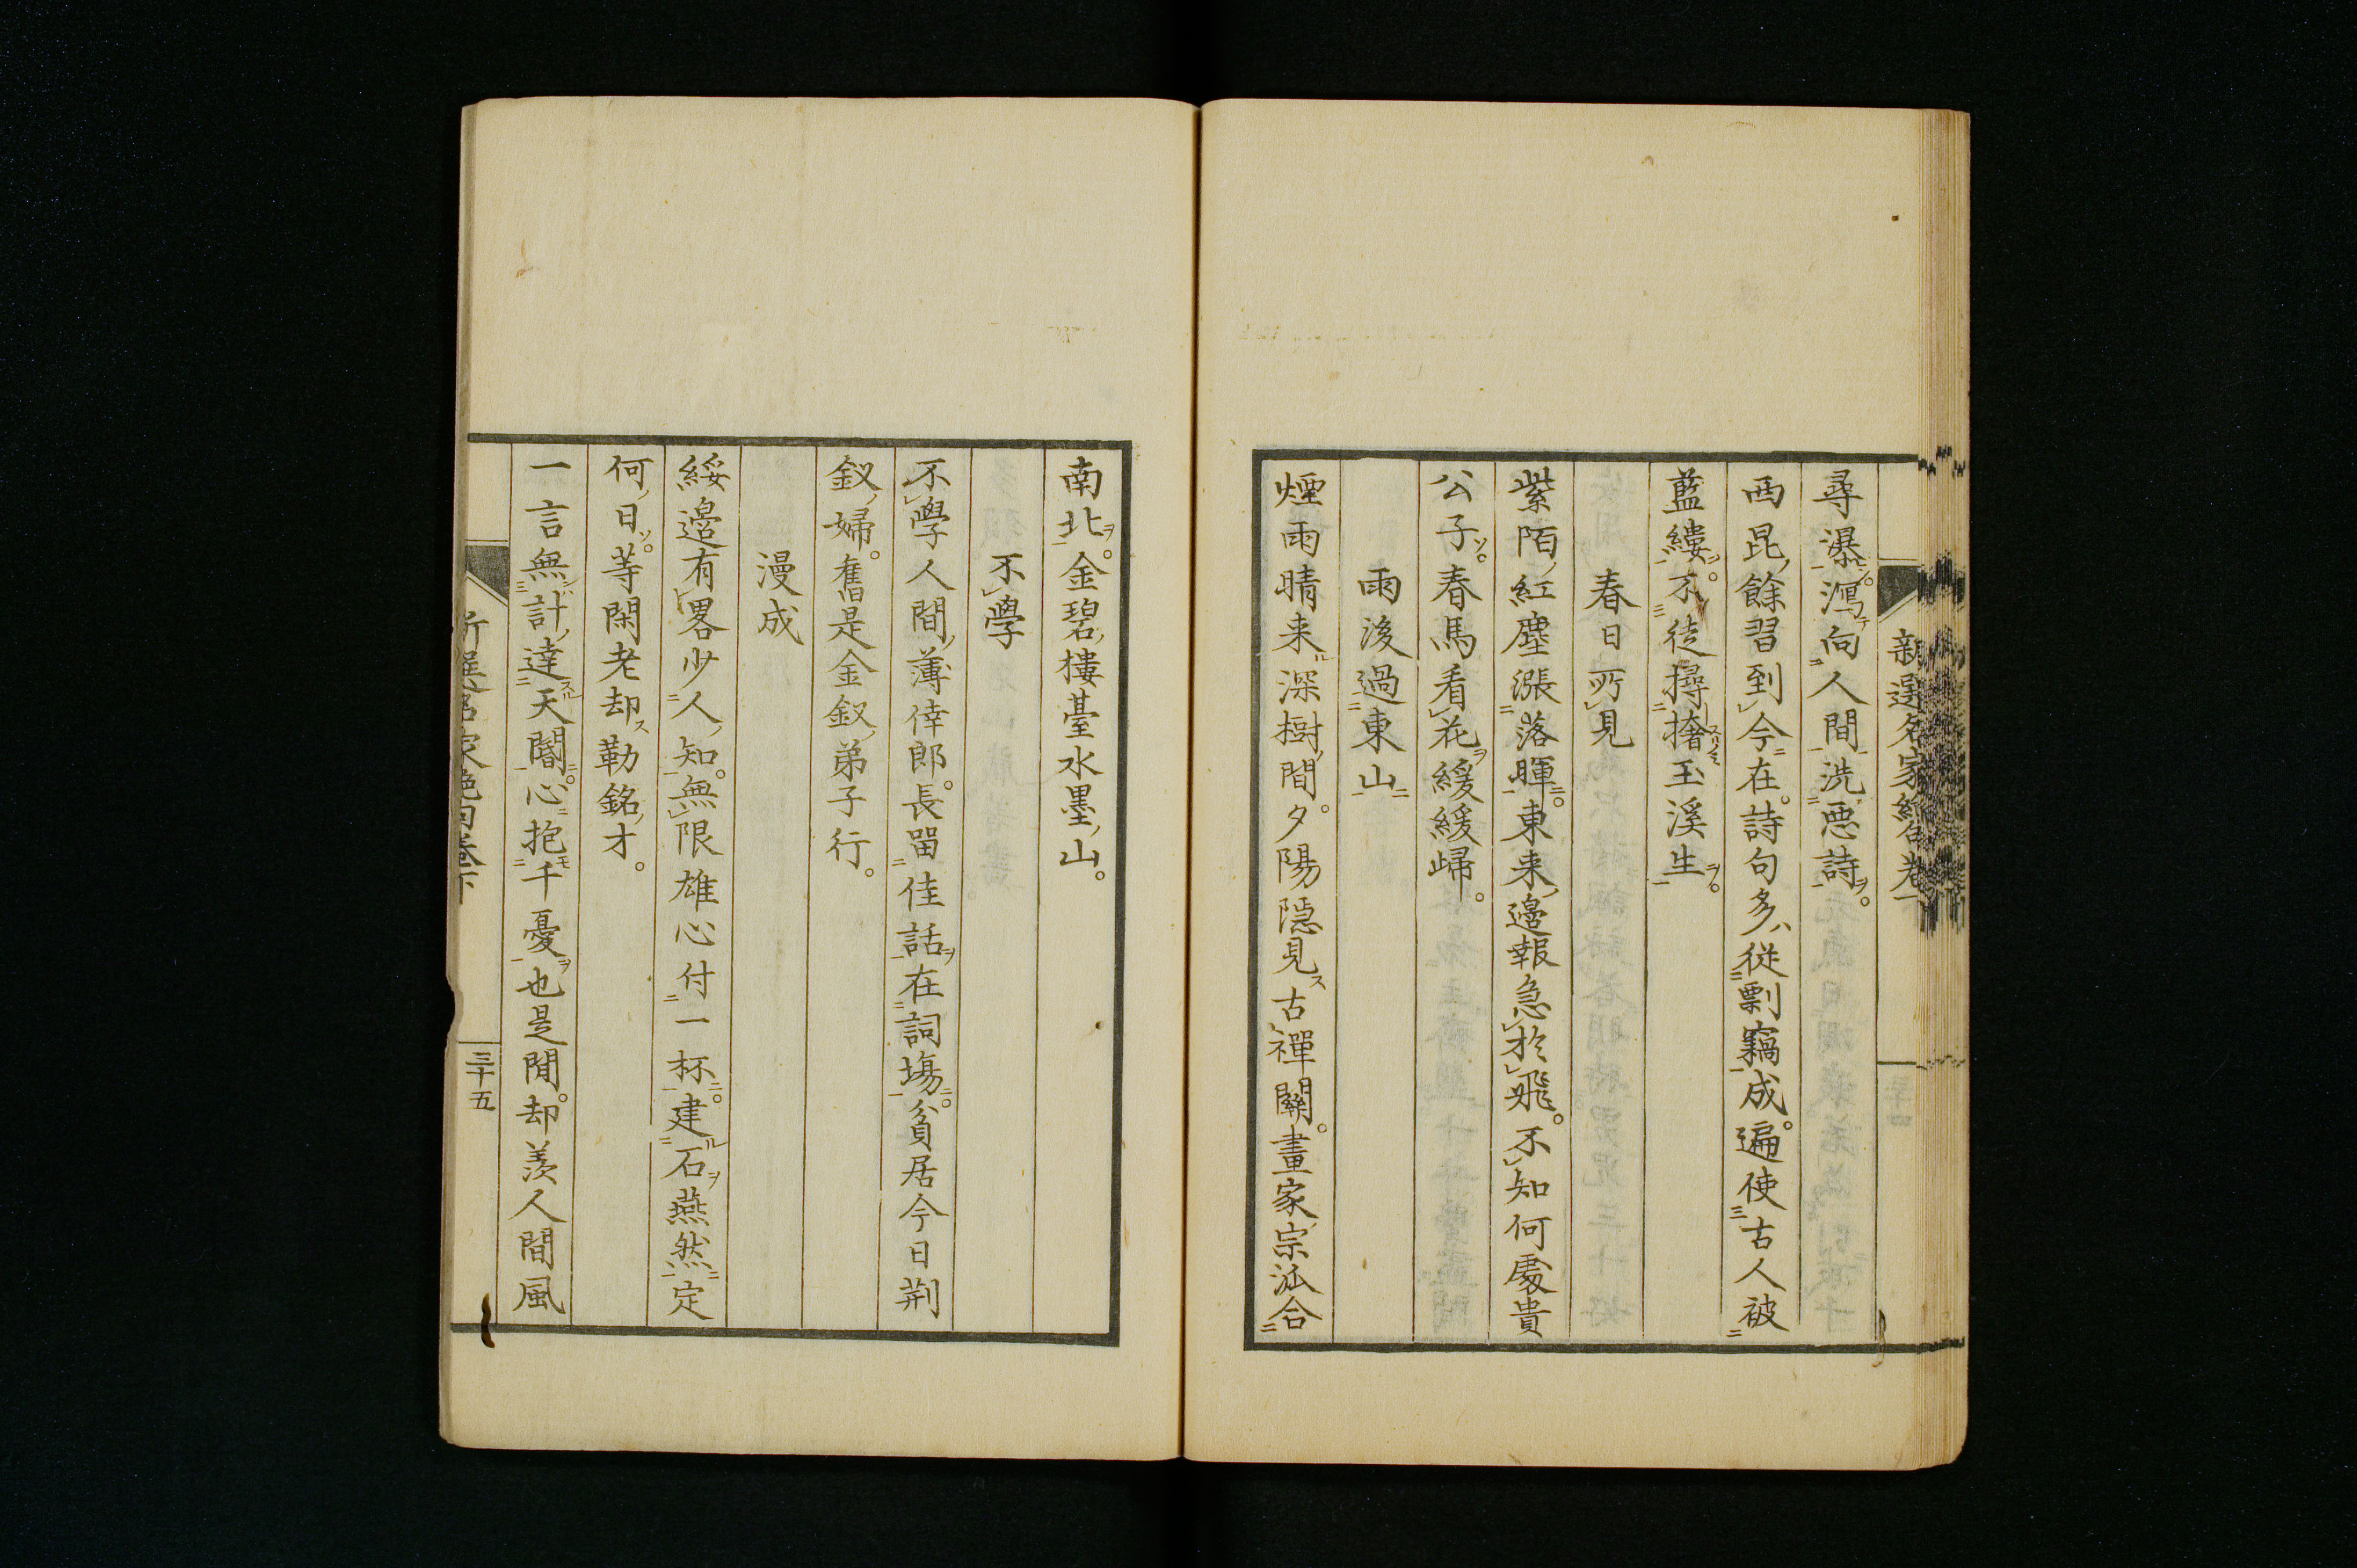 尋瀑。瀉向人間洗惡詩。
西昆餘習到今在。詩句多從剽竊成。遍使古人被
藍縷。不徒撏撦玉溪生。
春日所見
紫陌紅塵漲落暉。東来邊報急於飛。不知何處貴
公子。春馬看花緩緩歸。
雨後過東山
煙雨晴来深樹間。夕陽隠見古禪關。畫家宗派合
南北。金碧樓臺水墨山。
不學
不學人間薄倖郎。長留佳話在詞場。貧居今日荆
釵婦。舊是金釵弟子行。
漫成
綏邊有畧少人知。無限雄心付一杯。建石燕然定
何日。等閑老却勒銘才。
一言無計達天閽。心抱千憂也是閒。却羨人間風
三十五